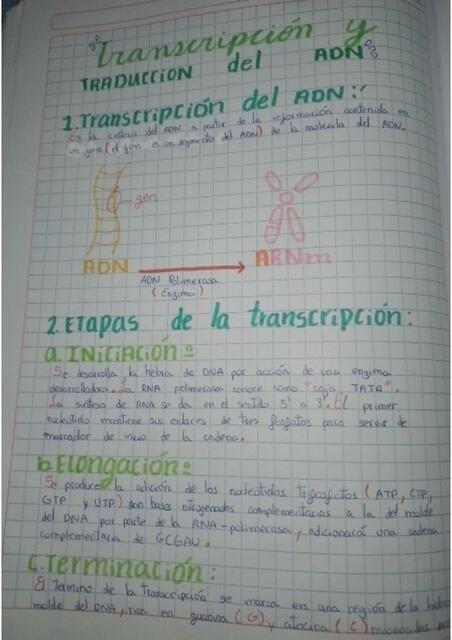 Transcripción y
TRADUCCION del ADN
1. Transcripción del ADN:
Es la sintesis del ADN a partir de la información contenida en
un gen (el gen es un segmento del ADN) de la molecula del ADN.
gen
ADN
ARNm
ADN Polimerasa
(Enzima)
2. ETAPAS de la transcripción:
a. INICIACIÓN:
Se desarolla la hebra de DNA por acción de una enzima
desarolladora. La RNA polimerasa conoce como "caja TATA".
La sintesis de RNA se da en el sentido 5' a 3'. El primer
nucleotido mantiene sus enlaces de tres fosfatos para servir de
marcador de inicio de la cadena.
b. Elongación:
Se produce la adición de los nucleotidos (ATP, CTP,
GTP y UTP) son bases complementarias a la del molde
del DNA por parte de la RNA-polimerasa, adicionará una cadena
complementaria de GCGAU.
C. Terminación:
El termino de la transcripción se marca en una región de la hebra
molde del DNA, rica en guanina (G) y citocina (C)